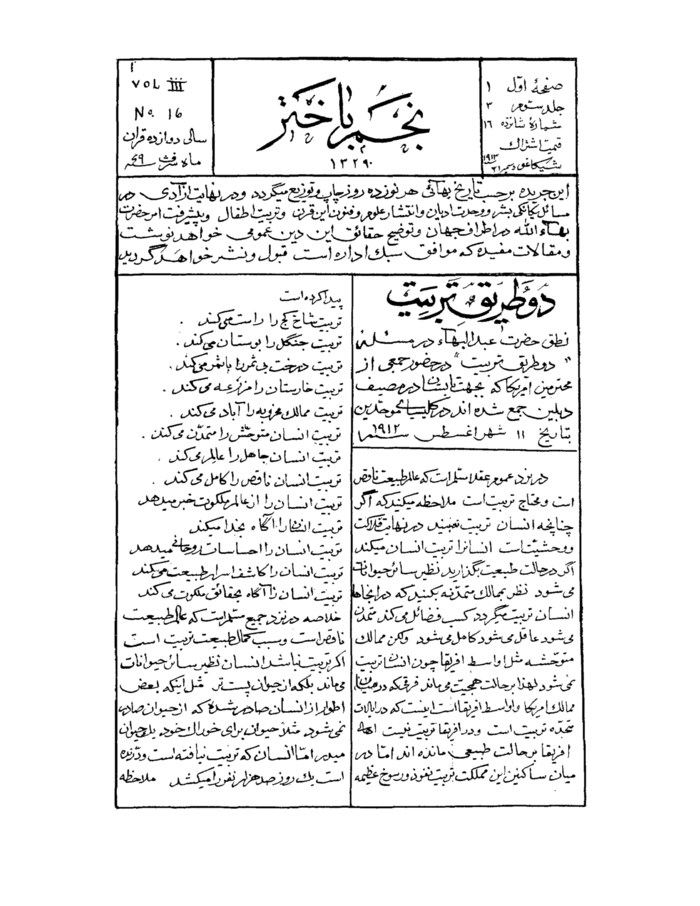 صفحهٔ اوّل ۱
جلد ستوم ۳
شمارهٔ شانزده ۱۶
قیمت اشتراک
شیکاغو دسمبر ۳۱ ۱۹۱۲
نجم باختر
۱۳۲۹۰
۱
VOL III
No. 16
سالی دوازده قران
ماه شرف سنه ۶۹
این جریده برحسب تاریخ بهائی هر نوزده روز چاپ و توزیع میگردد و در نهایت آزادی در
مسائل یگانگی بشر و وحدت ادیان و انتشار علوم و فنون این قرن و تربیت اطفال و پیشرفت امر حضرت
بهآء الله در اطراف جهان و توضیح حقائق این دین عمومی خواهد نوشت
و مقالات مفیده که موافق سبک اداره است قبول و نشر خواهد گردید
دو طریق تربیت
نطق حضرت عبدالبهآء در مسئله
"دو طریق تربیت" در حضور جمعی از
محترمین امریکا که بجهت تابستانی در مصیف
دبلین جمع شده اند در کلیسای موحّدین
بتاریخ ۱۱ شهر اغسطس سنه ۱۹۱۲
در نزد عموم عقلا مسلم است که عالم طبیعت ناقص
است و محتاج تربیت است ملاحظه میکنید که اگر
چنانچه انسان تربیت نبیند در نهایت فلاکت
و وحشیت است انسانرا تربیت انسان میکند
اگر در حالت طبیعت بگذارید نظیر سائر حیوانات
می شود نظر بممالک متمدّنه بکنید که در اینجاها
انسان تربیت میگردد کسب فضائل می کند متمدّن
می شود عاقل می شود کامل می شود ولکن ممالک
متوحّشه مثل اواسط افریقا چون انسان تربیت
نمی شود لهذا بر حالت همجیت می ماند فرقی که در میان
ممالک امریکا و اواسط افریقا است اینست که در ایالات
متحده تربیت است و در افریقا تربیت نیست اهل
افریقا بر حالت طبیعی مانده اند امّا در
میان ساکنین این مملکت تربیت نفوذ و رسوخ عظیمه
پیدا کرده است
تربیت شاخ کج را راست می کند .
تربیت جنگل را بوستان می کند .
تربیت درخت بی ثمر را باثمر می کند .
تربیت خارستان را مزرعه می کند .
تربیت ممالک مخروبه را آباد می کند .
تربیت انسان متوحّش را متمدّن می کند .
تربیت انسان جاهل را عالم می کند .
تربیت انسان ناقص را کامل می کند .
تربیت انسان را از عالم ملکوت خبر میدهد
تربیت انسان را آگاه بخدا میکند
تربیت انسان را احساسات روحانی میدهد
تربیت انسان را کاشف اسرار طبیعت می کند
تربیت انسان را آگاه بحقائق ملکوت می کند
خلاصه در نزد جمیع مسلّم است که عالم طبیعت
ناقص است و سبب کمال طبیعت تربیت است
اگر تربیت نباشد انسان نظیر سائر حیوانات
می ماند بلکه از حیوان پست تر مثل اینکه بعض
اطوار از انسان صادر شده که از حیوان صادر
نمی شود مثلاً حیوانی برای خوراک خود یک حیوان
میدرد امّا انسان که تربیت نیافته است و درّنده
است یک روز صد هزار نفر را میکشد ملاحظه